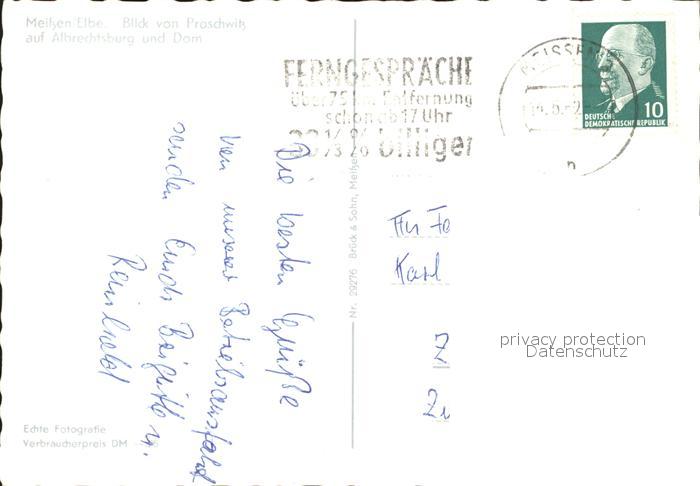 Meißen/Elbe. Blick von Proschwitz
auf Albrechtsburg und Dom
FERNGESPRÄCHE
über 75 km Entfernung
schon ab 17 Uhr
33⅓ % billiger
MEISSEN
DEUTSCHE
DEMOKRATISCHE REPUBLIK
10
Die besten Grüße
von unserer Betriebsausfahrt
senden Euch Brigitte u.
Reinhold
Nr. 29276 Brück & Sohn, Meißen
An Fa
Karl
Z
Zi
privacy protection
Datenschutz
n
Echte Fotografie
Verbraucherpreis DM